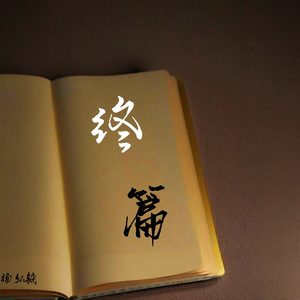 终
篇
杨弘毅